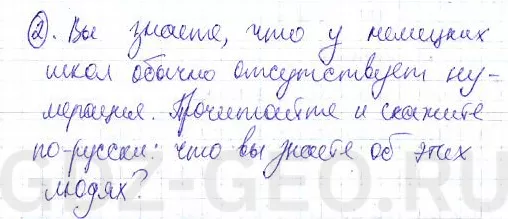 2. Вы знаете, что у немецких
школ обычно отсутствует ну-
мерация. Прочитайте и скажите
по-русски: что вы знаете об этих
людях?
GDZ-GEO.RU